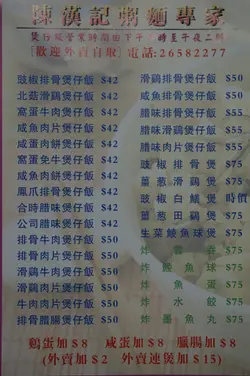 陳漢記粥麵專家
煲仔飯營業時間由下午六時至午夜二時
[歡迎外賣自取] 電話:26582277
豉椒排骨煲仔飯 $42
北菇滑鷄煲仔飯 $42
窩蛋牛肉煲仔飯 $42
咸魚肉片煲仔飯 $42
咸蛋肉餅煲仔飯 $42
窩蛋免牛煲仔飯 $42
咸魚肉餅煲仔飯 $42
鳳爪排骨煲仔飯 $42
合時臘味煲仔飯 $42
公司臘味煲仔飯 $42
排骨牛肉煲仔飯 $50
排骨肉片煲仔飯 $50
滑鷄牛肉煲仔飯 $50
牛肉肉片煲仔飯 $50
滑鷄肉片煲仔飯 $50
排骨臘腸煲仔飯 $50
滑鷄排骨煲仔飯 $50
咸魚排骨煲仔飯 $50
臘味排骨煲仔飯 $55
臘味滑鷄煲仔飯 $55
臘味肉片煲仔飯 $55
豉椒排骨煲 $75
薑葱滑鷄煲 $75
豉椒白鱔煲 時價
薑葱田鷄煲 $75
生菜鯪魚球煲 $75
炸雲吞 $75
炸鯪魚球 $75
炸魚蛋 $75
炸水餃 $75
炸墨魚丸 $75
鷄蛋加$8 咸蛋加$8 臘腸加$8
(外賣加$2 外賣連煲加$15)